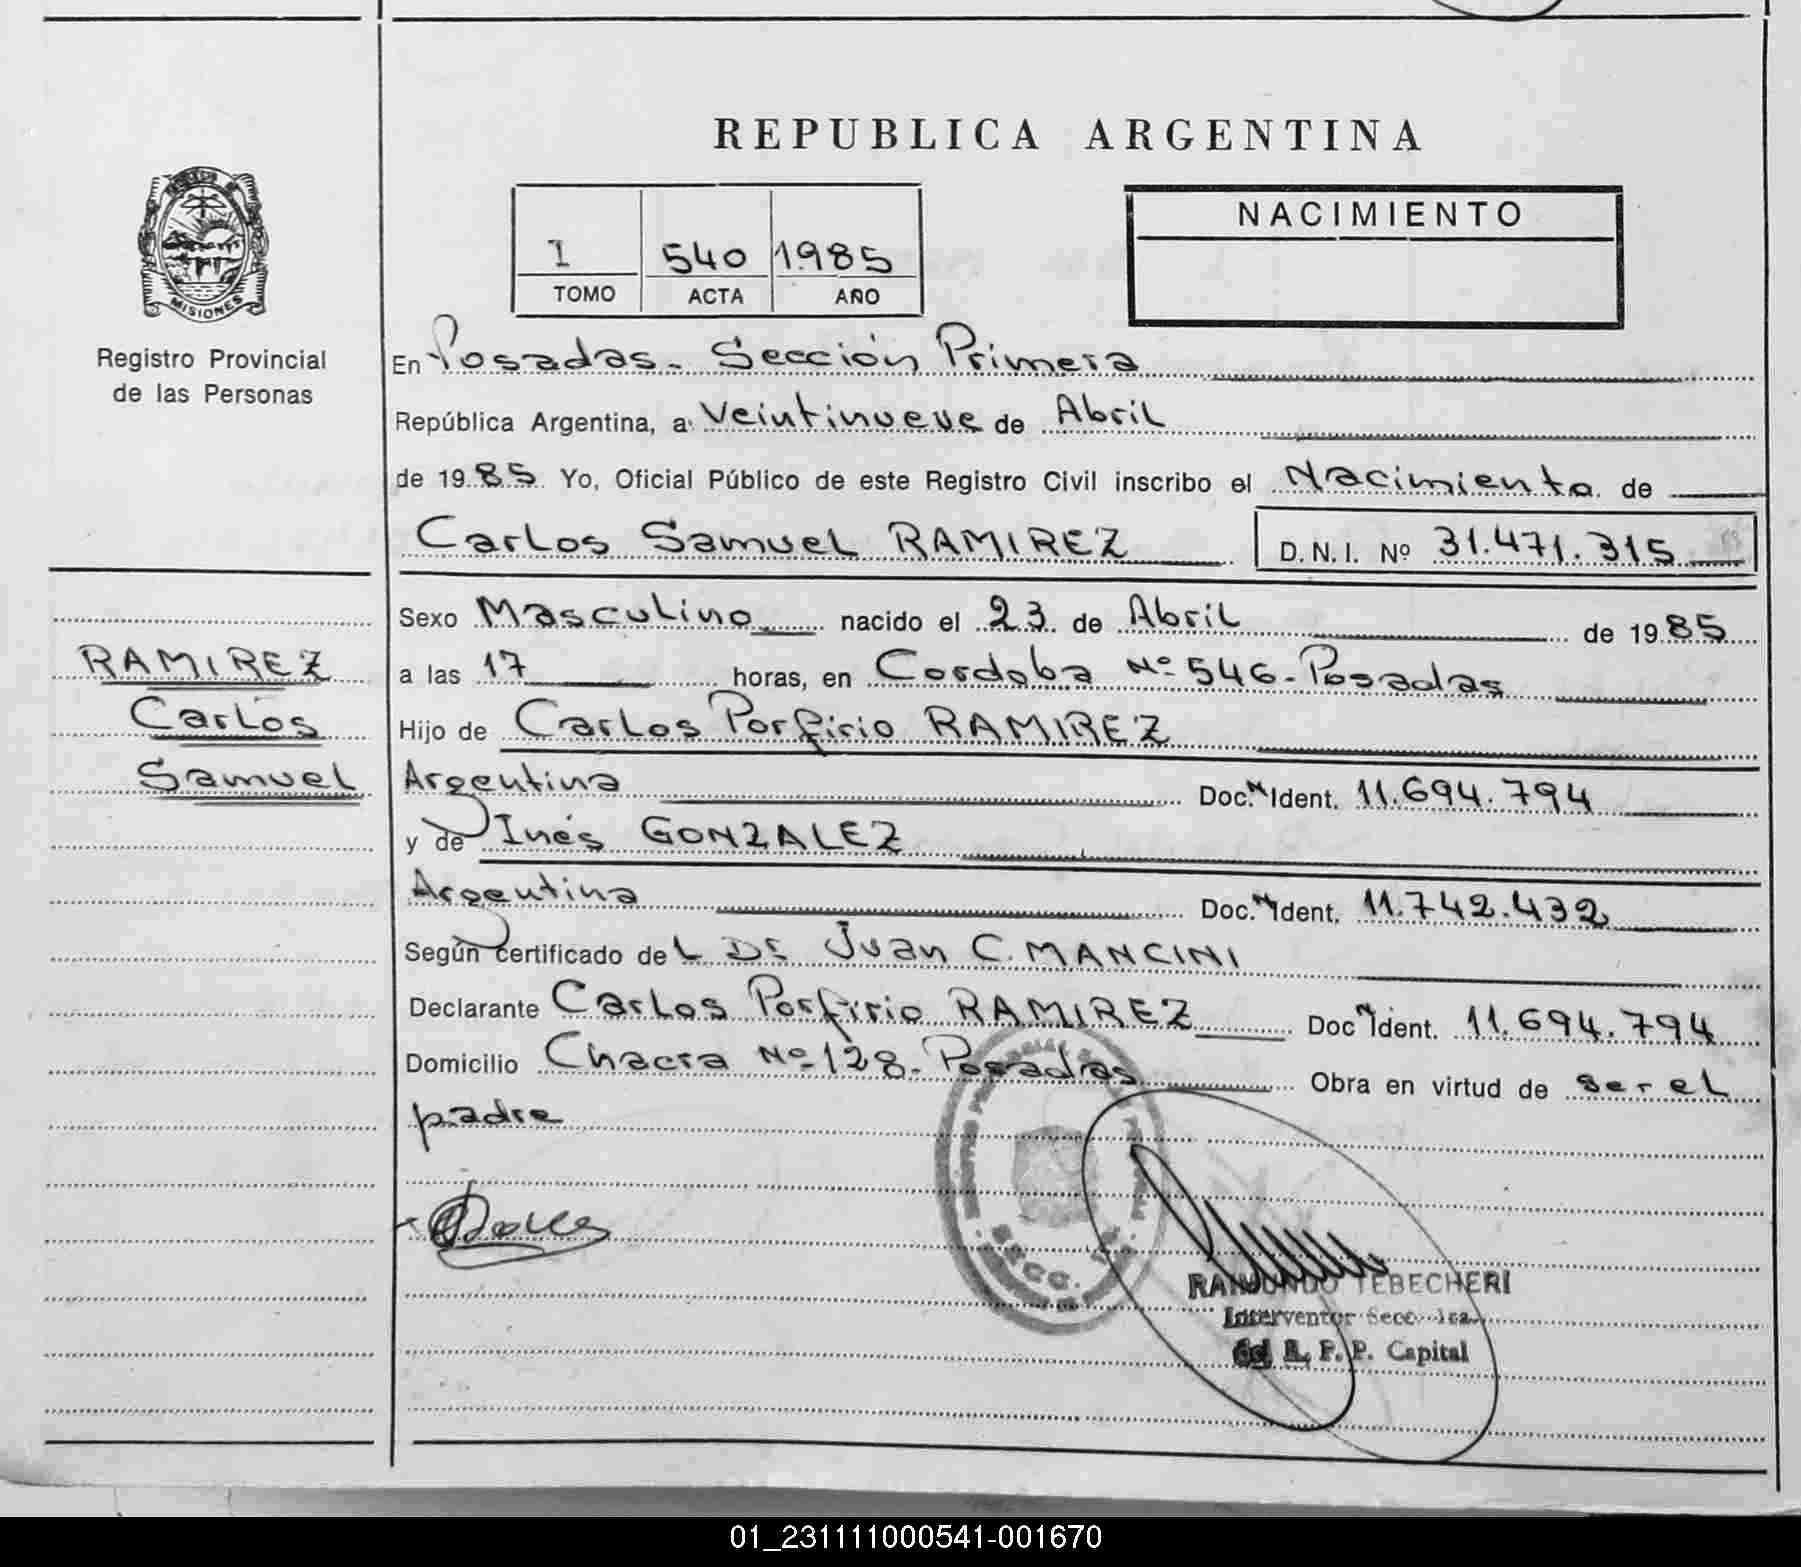 REPUBLICA ARGENTINA
I 540 1985
TOMO ACTA AÑO
NACIMIENTO
MISIONES
Registro Provincial
de las Personas
En Posadas. Sección Primera
República Argentina, a Veintinueve de Abril
de 1985 Yo, Oficial Público de este Registro Civil inscribo el Nacimiento de
Carlos Samuel RAMIREZ D.N.I. Nº 31.471.315
Sexo Masculino nacido el 23 de Abril de 1985
a las 17 horas, en Cordoba Nº 546-Posadas
Hijo de Carlos Porfirio RAMIREZ
Argentina Doc. Ident. 11.694.794
y de Inés GONZALEZ
Argentina Doc. Ident. 11.742.432
Según certificado del Dr Juan C. MANCINI
Declarante Carlos Porfirio RAMIREZ Doc Ident. 11.694.794
Domicilio Chacra Nº 128-Posadas Obra en virtud de ser el
padre
RAMIREZ
Carlos
Samuel
SECC. 1ra
RAIMUNDO TEBECHERI
Interventor Secc. 1ra.
del R. P. P. Capital
01_231111000541-001670